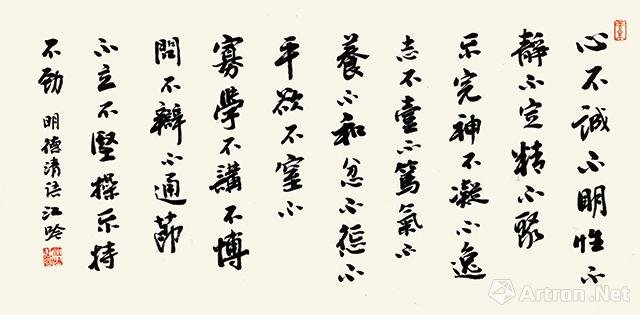 心不誠不明性不
靜不定精不聚
不完神不凝不逸
志不壹不篤氣不
養不和忿不懲不
平欲不窒不
寡學不講不博
問不辯不通節
不立不堅操不持
不勁 明德清語 江吟
Artron.Net